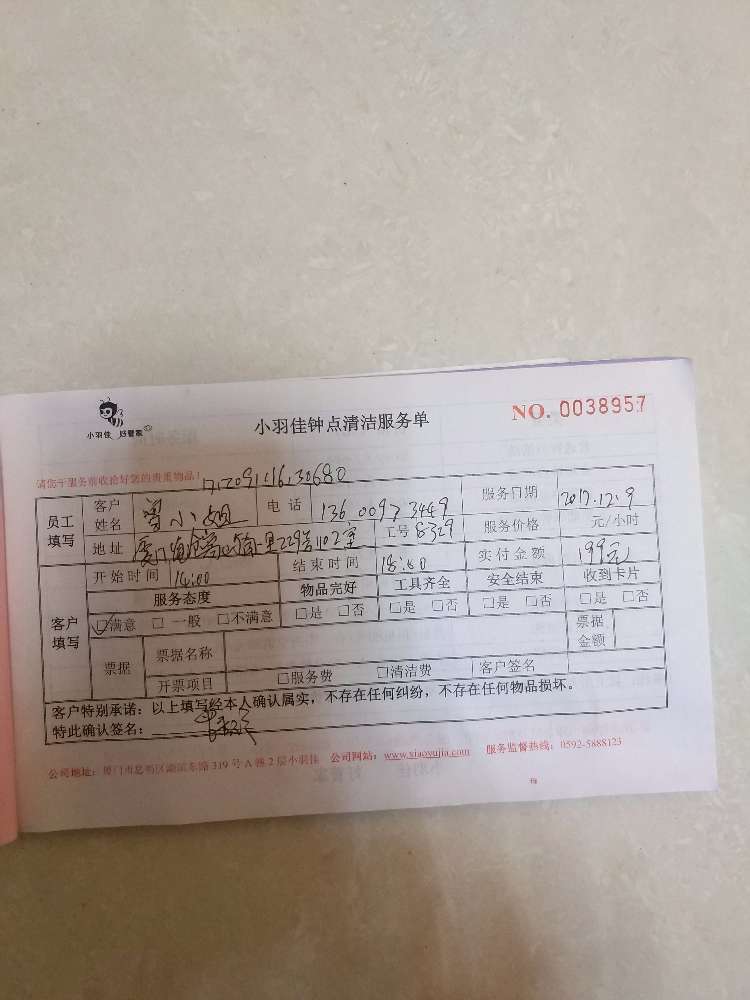 小羽佳 好管家
小羽佳钟点清洁服务单
NO. 0038957
请您于服务前收拾好您的贵重物品!
员工填写 客户姓名 曾小姐 电话 136 0097 3449 服务日期 2017.12.9
地址 厦门 里229号1102室 工号 8329 服务价格 元/小时
客户填写 开始时间 14:00 结束时间 18:00 实付金额 199元
服务态度 物品完好 工具齐全 安全结束 收到卡片
☑满意 □一般 □不满意 □是 □否 □是 □否 □是 □否 □是 □否
票据 票据名称 票据金额
开票项目 □服务费 □清洁费 客户签名
客户特别承诺:以上填写经本人确认属实,不存在任何纠纷,不存在任何物品损坏。
特此确认签名:
公司地址:厦门市思明区湖滨东路319号A栋2层小羽佳 公司网站:www.xiaoyujia.com 服务监督热线:0592-5888123